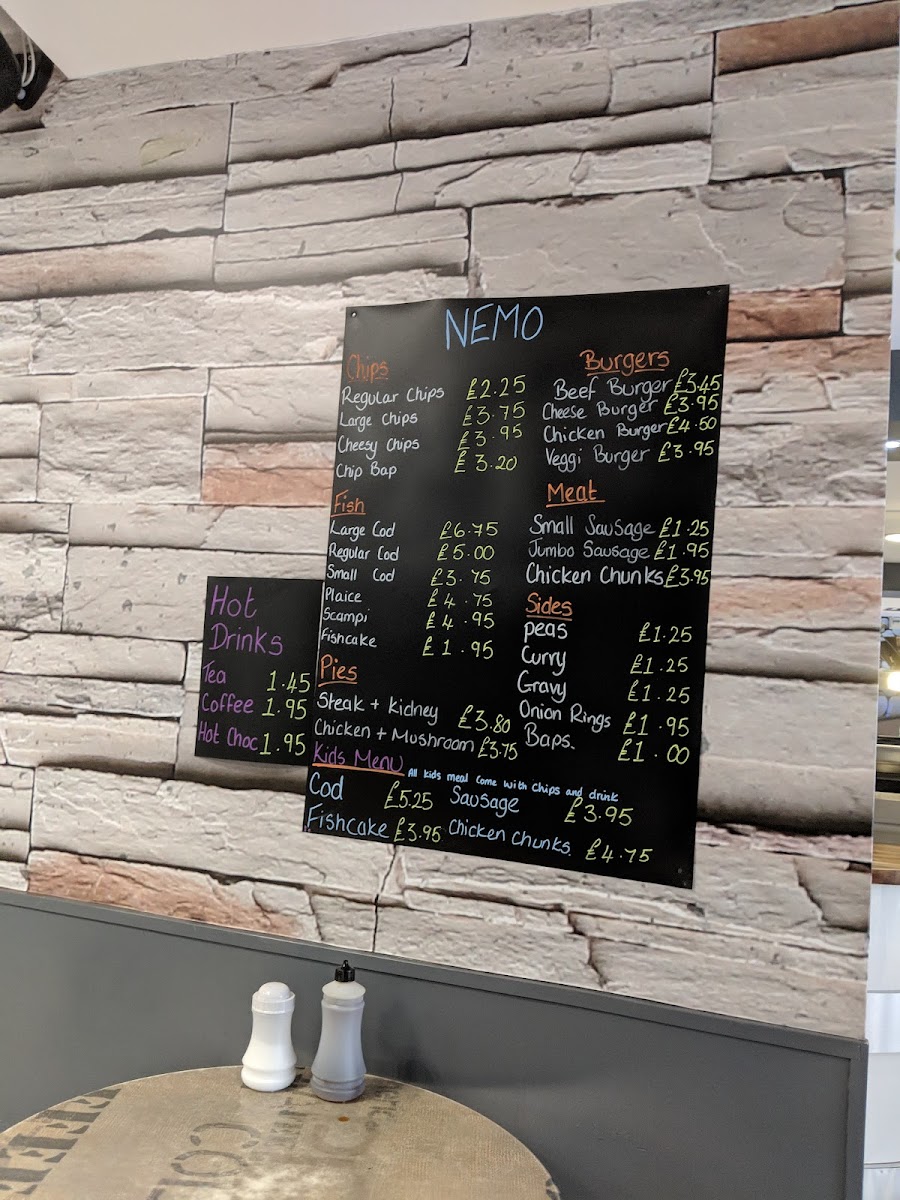 NEMO
Chips
Regular Chips £2.25
Large Chips £3.75
Cheesy Chips £3.95
Chip Bap £3.20
Fish
Large Cod £6.75
Regular Cod £5.00
Small Cod £3.75
Plaice £4.75
Scampi £4.95
Fishcake £1.95
Pies
Steak + Kidney £3.80
Chicken + Mushroom £3.75
Burgers
Beef Burger £3.45
Cheese Burger £3.95
Chicken Burger £4.50
Veggi Burger £3.95
Meat
Small Sausage £1.25
Jumbo Sausage £1.95
Chicken Chunks £3.95
Sides
peas £1.25
Curry £1.25
Gravy £1.25
Onion Rings £1.95
Baps. £1.00
Kids Menu All kids meal come with chips and drink
Cod £5.25 Sausage £3.95
Fishcake £3.95 Chicken Chunks. £4.75
Hot
Drinks
Tea 1.45
Coffee 1.95
Hot Choc 1.95